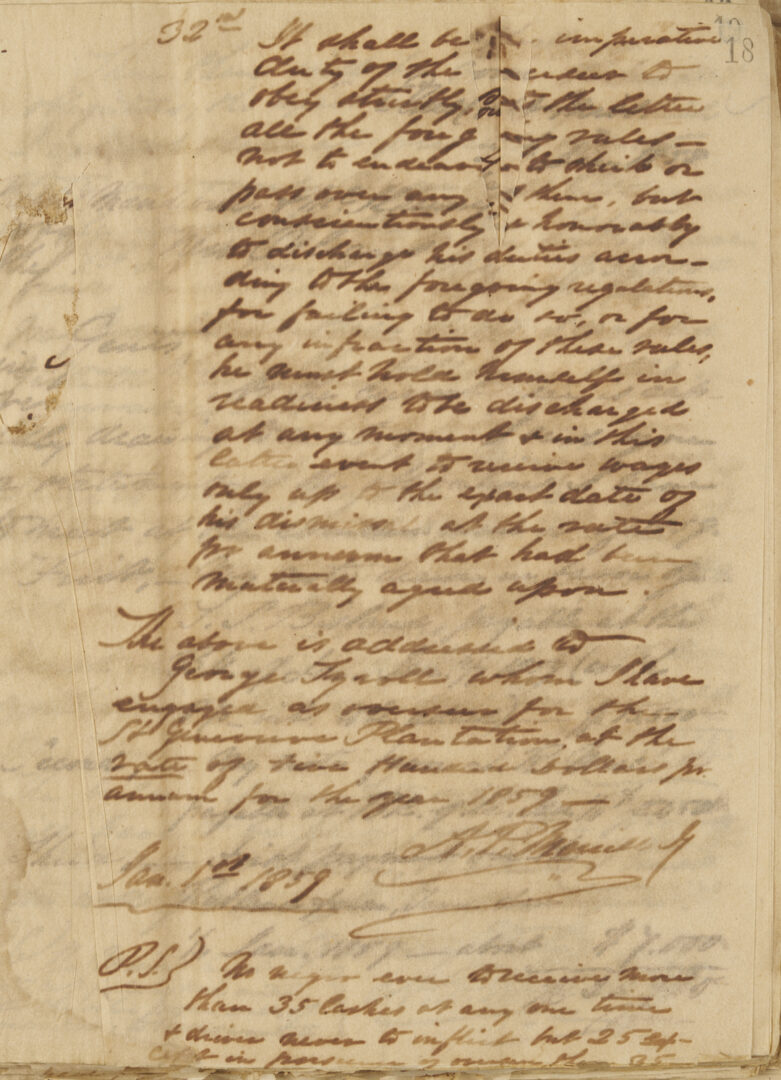 18
32nd It shall be imperative
duty of the to
obey strictly, the letter
all the rules —
not to endeavor to shirk or
pass over any of them, but
conscientiously & honorably
to discharge his duties accor-
ding to the foregoing regulations,
for failing to do so, or for
any infraction of these rules,
he must hold himself in
readiness to be discharged
at any moment & in this
latter event to receive wages
only up to the exact date of
his dismissal at the rate
pr annum that had been
mutually agreed upon.
The above is addressed to
George whom I have
engaged as overseer for the
St Genevieve Plantation, at the
rate of five Hundred Dollars pr.
annum for the year 1859 —
A. P. Merrill Jr
Jan. 1st 1859
P.S. No negro ever to receive more
than 35 lashes at any one time
& driver never to inflict but 25 ex-
cept in of overseer then 35